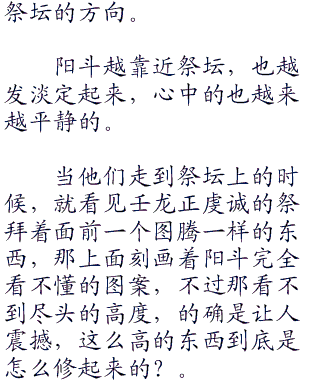 祭坛的方向。
阳斗越靠近祭坛，也越
发淡定起来，心中的也越来
越平静的。
当他们走到祭坛上的时
候，就看见壬龙正虔诚的祭
拜着面前一个图腾一样的东
西，那上面刻画着阳斗完全
看不懂的图案，不过那看不
到尽头的高度，的确是让人
震撼，这么高的东西到底是
怎么修起来的？。